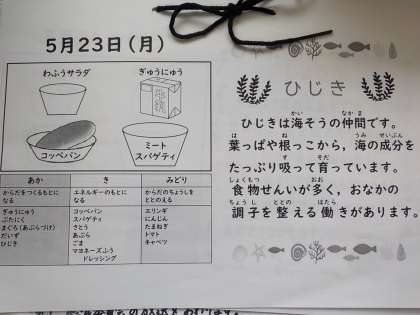 5月23日（月）
わふうサラダ
ぎゅうにゅう
コッペパン
ミート
スパゲティ
あか
き
みどり
からだをつくるもとになる
エネルギーのもとになる
からだのちょうしをととのえる
ぎゅうにゅう
ぶたにく
まぐろ（あぶらづけ）
だいず
ひじき
コッペパン
スパゲティ
さとう
あぶら
ごま
マヨネーズふう
ドレッシング
エリンギ
にんじん
たまねぎ
トマト
キャベツ
ひじき
ひじきは海そうの仲間です。
葉っぱや根っこから，海の成分を
たっぷり吸って育っています。
食物せんいが多く，おなかの
調子を整える働きがあります。